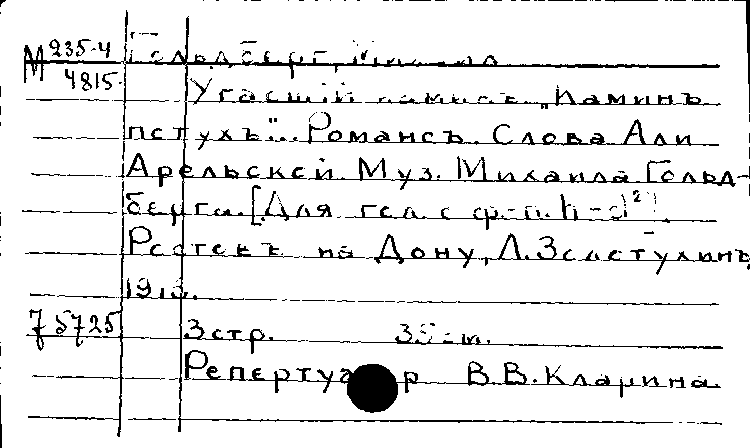 М 235-4
4815
Гольдберг, Михаил
Угасшій каминъ. „Каминъ
потухъ“... Романсъ. Слова Али
Арельской. Муз. Михаила Гольд-
берга. [Для гол. с ф.-п. h-d²].
Ростовъ на Дону, Л. Заступинъ,
1913.
75725
3 стр. 35 см.
Репертуар В.В. Кларина